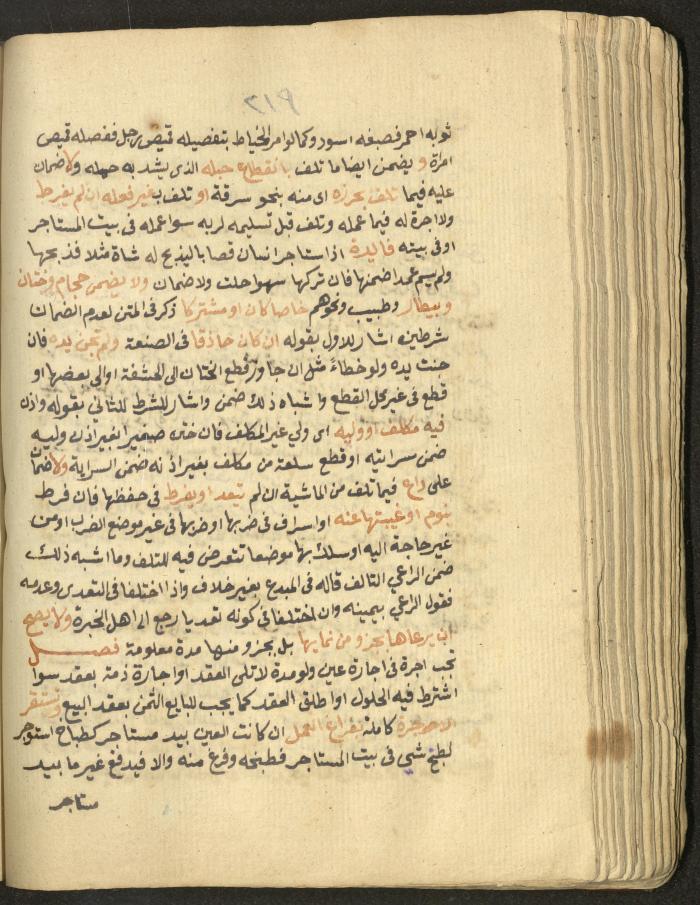 ٢١٩
ثوبه احمر فصبغه اسود وكما لو امر الخياط بتفصيله قميص رجل ففصله قميص
امراة ويضمن ايضا ما تلف بانقطاع حبله الذى يشد به حمله ولا ضمان
عليه فيما تلف بحرزه اى منه بنحو سرقة او تلف بغير فعله ان لم يفرط
ولا اجرة له فيما عمله وتلف قبل تسليمه لربه سوا عمله فى بيت المستاجر
او فى بيته فايدة اذا استاجر انسان قصابا ليذبح له شاة مثلا فذبحها
ولم يسم عمدا ضمنها فان تركها سهوا حلت ولا ضمان ولا يضمن حجام وختان
وبيطار وطبيب ونحوهم خاصا كان او مشتركا ذكر فى المتن لعدم الضمان
شرطين اشار للاول بقوله ان كان حاذقا فى الصنعة ولم تجن يده فان
جنت يده ولو خطاءً مثل ان جاوز قطع الختان الى الحشفة او الى بعضها او
قطع فى غير محل القطع واشباه ذلك ضمن واشار للشرط الثانى بقوله واذن
فيه مكلف او وليه اى ولى غير المكلف فان ختن صغيرا بغير اذن وليه
ضمن سرايته او قطع سلعة من مكلف بغير اذنه ضمن السراية ولا ضمان
على راع فيما تلف من الماشية ان لم يتعد او يفرط فى حفظها فان فرط
بنوم او غيبتها عنه او اسرف فى ضربها او ضربها فى غير موضع الضرب او من
غير حاجة اليه او سلك بها موضعا تتعرض فيه للتلف وما اشبه ذلك
ضمن الراعي التالف قاله فى المبدع بغير خلاف واذا اختلفا فى التعدى وعدمه
فقول الراعي بيمينه وان اختلفا فى كونه تعديا رجع الى اهل الخبرة ولا يصح
ان يرعاها بجزو من نمايها بل بجزو منها مدة معلومة فصل
تجب اجرة فى اجارة عين ولو مدة لا تلى العقد او اجارة ذمة بعقد سوا
اشترط فيه الحلول او اطلق العقد كما يجب للبايع الثمن بعقد البيع وتستقر
الاجرة كاملة بفراغ العمل ان كانت العين بيد مستاجر كطباخ استوجر
لطبخ شى فى بيت المستاجر فطبخه وفرغ منه والا فيدفع غير ما بيد
مستاجر